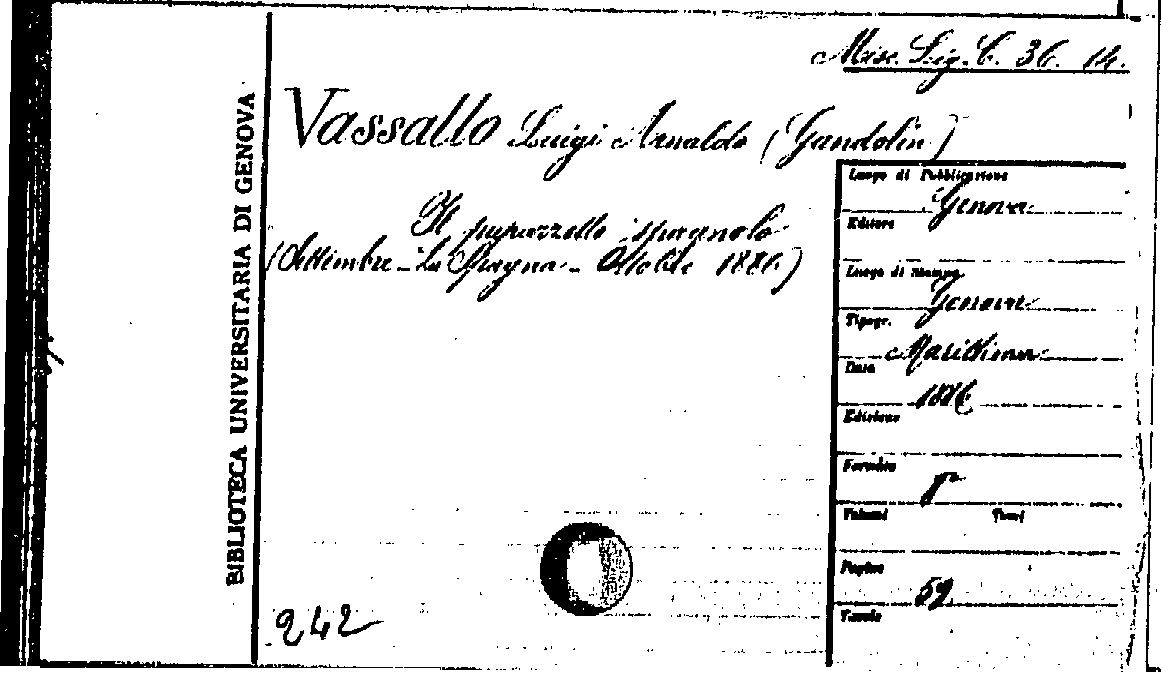 Misc. Lig. C. 36. 14.
BIBLIOTECA UNIVERSITARIA DI GENOVA
Vassallo Luigi Arnaldo (Gandolin)
Il pupazzetto spagnolo
(Settimbre - La Spagna - Ottobre 1886)
Luogo di Pubblicazione
Genova
Editore
Luogo di Stampa
Genova
Tipogr.
Marittima
Data
1886
Edizione
Formato
8°
Volumi Tomi
Pagine
59
Tavole
242